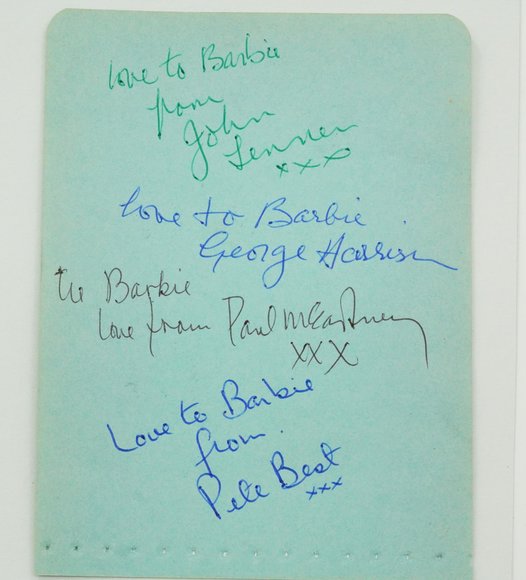 love to Barbie
from
John
Lennon
xxx
love to Barbie.
George Harrison
to Barbie
love from Paul McCartney
xxx
Love to Barbie
from.
Pete Best
xxx